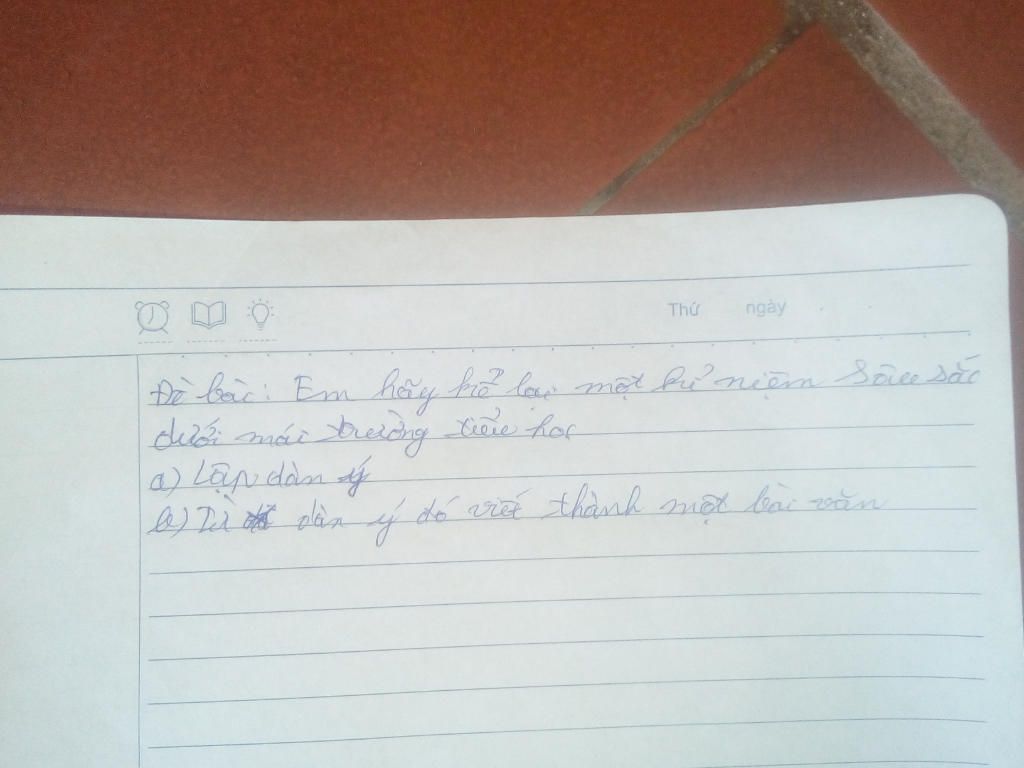 Thứ ngày
Đề bài: Em hãy kể lại một kỉ niệm sâu sắc
dưới mái trường tiểu học
a) Lập dàn ý
b) Từ dàn ý đó viết thành một bài văn